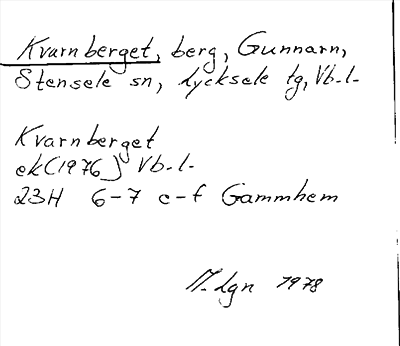 Kvarnberget, berg, Gunnarn,
Stensele sn, Lycksele tg, Vb. l.
Kvarnberget
ek (1976) Vb. l.
23H 6-7 c-f Gammhem
lgn 1978